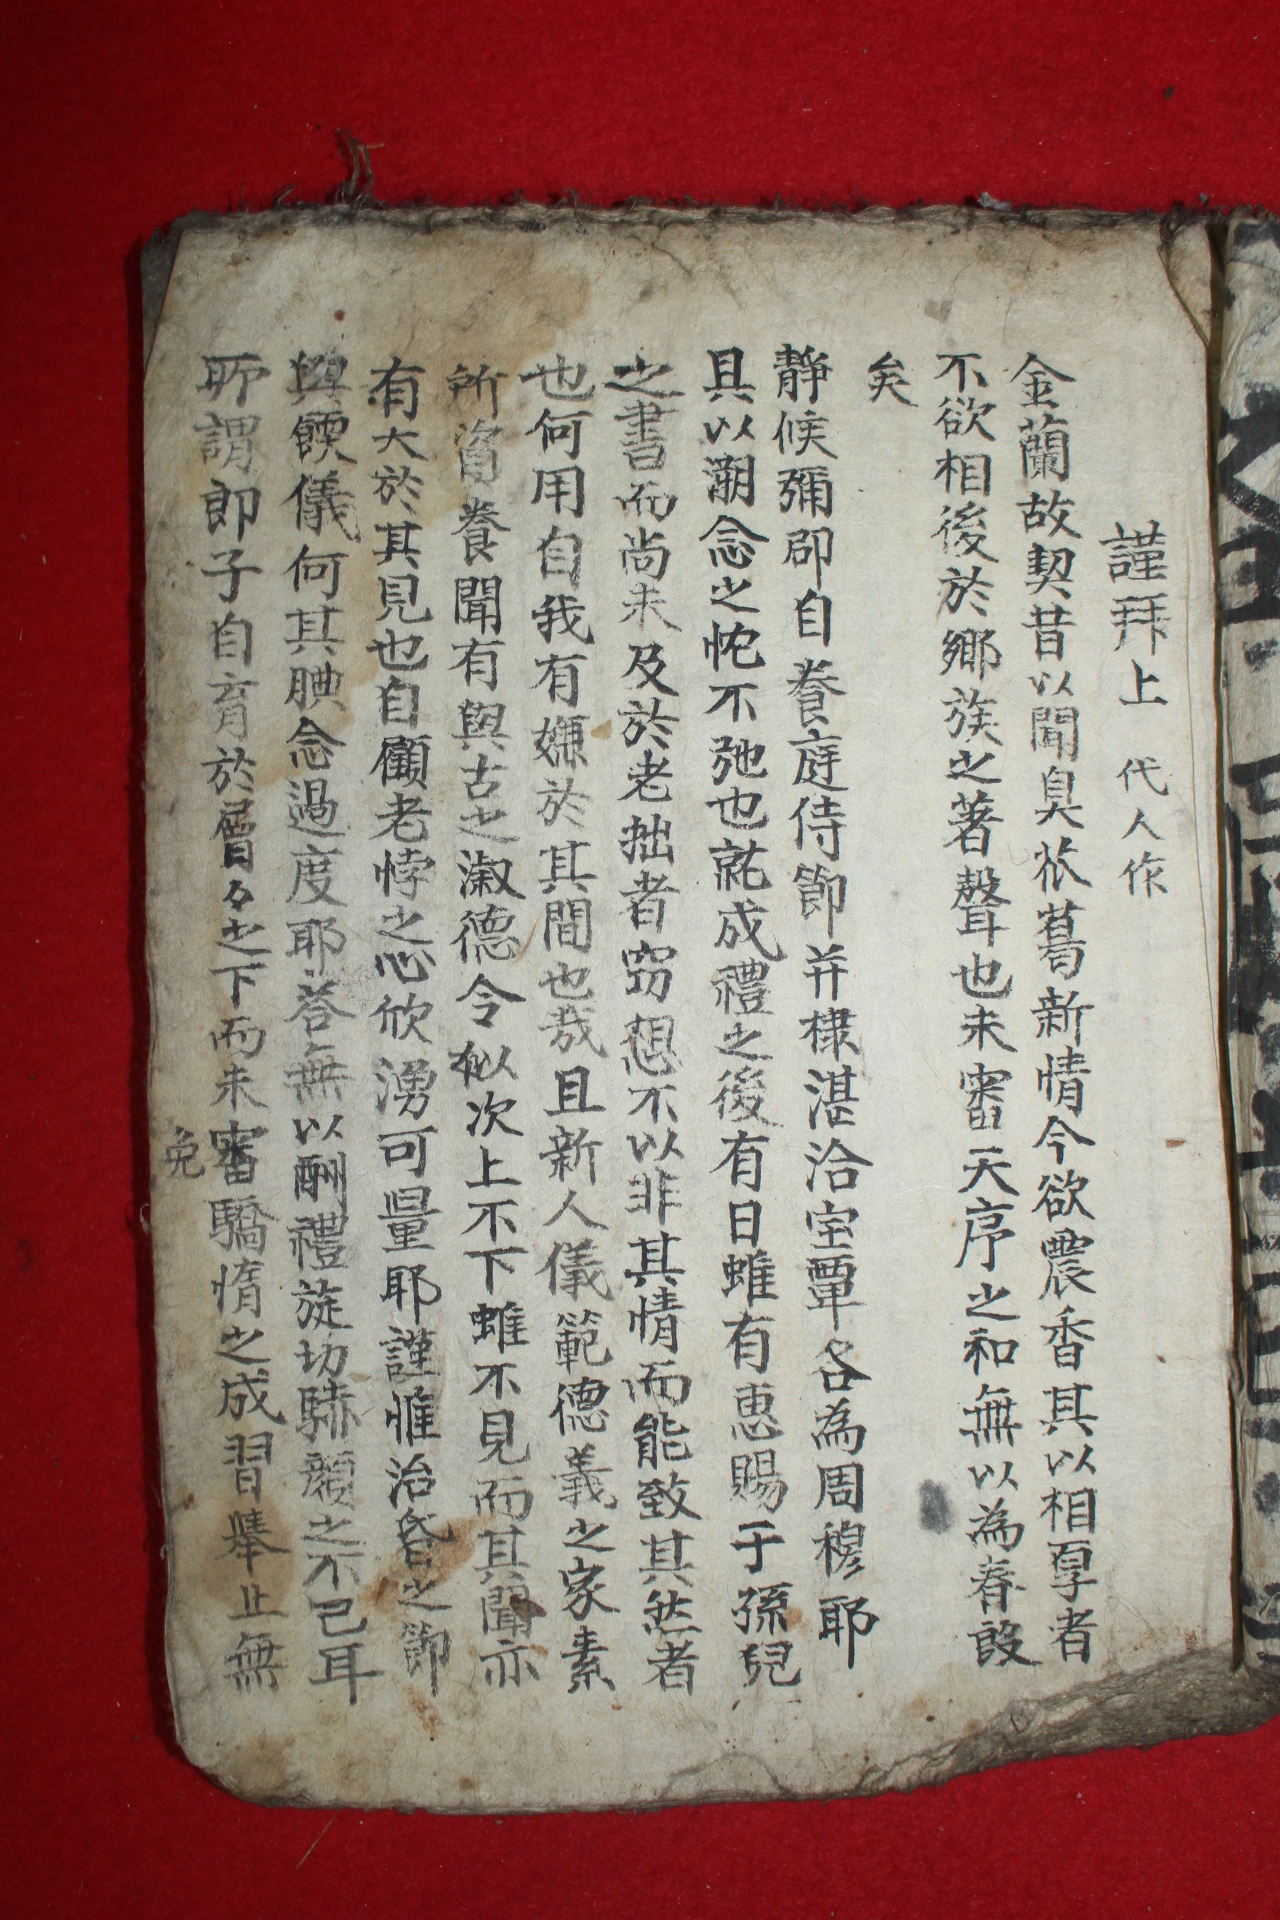 謹拜上 代人作
金蘭故契昔以聞臭衣葛新情今欲震香其以相厚者
不欲相後於鄉族之著聲也未審天序之和無以為春設
矣
靜候彌卲自養庭侍節并棣湛洽室覃各為周穆耶
具以潮念之忱不弛也就成禮之後有日雖有惠賜于孫兒
之書而尚未及於老拙者窃想不以非其情而能致其然者
也何用自我有嫌於其間也哉且新人儀範德義之家素
所資養聞有與古之淑德令似次上不下雖不見而其聞亦
有大於其見也自顧老悖之心欣湧可量耶謹惟治昏之節
與饌儀何其腆念過度耶荅無以酬禮旋切騂顔之不已耳
所謂郎子自育於層々之下而未審驕惰之成習擧止無
免